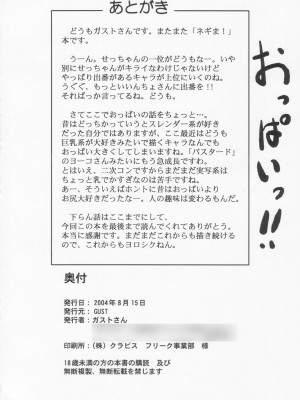 あとがき
どうもガストさんです。またまた「ネギま！」
本です。
うーん。せっちゃんの一位がどうもなー。いや
別にせっちゃんがキライなわけじゃないけど
やっぱり出番があるキャラが上位にいくのね。
うぐぐ、もっといいんちょさんに出番を！！
そればっか言ってるね。どうも。
さてここでおっぱいの話をちょっと…。
昔はどっちかっていうとスレンダー系が好き
だった自分ではありますが、ここ最近はどうも
巨乳系が大好きみたいで描くキャラなんでも
おっぱい大きくしてしまいますね。「バスタード」
のヨーコさんみたいにもう急成長ですわ。
とはいえ、二次コンですからまだまだ実写系は
ちょっと乳でかすぎなのは苦手ですね。
あー、そういえばホントに昔はおっぱいより
お尻大好きだったなー。人の趣味は変わるもんだ。
下らん話はここまでにして、
今回この本を最後まで読んでくれてありがとう。
本当に感謝です。まだまだこれからも描き続ける
ので、これからもヨロシクねです。
おっぱいっ!!
奥付
発行日：2004年8月15日
発行元：GUST
発行者：ガストさん
印刷所：(株) クラビス フリーク事業部 様
18歳未満の方の本書の購読 及び
無断複製、無断転載を禁じます